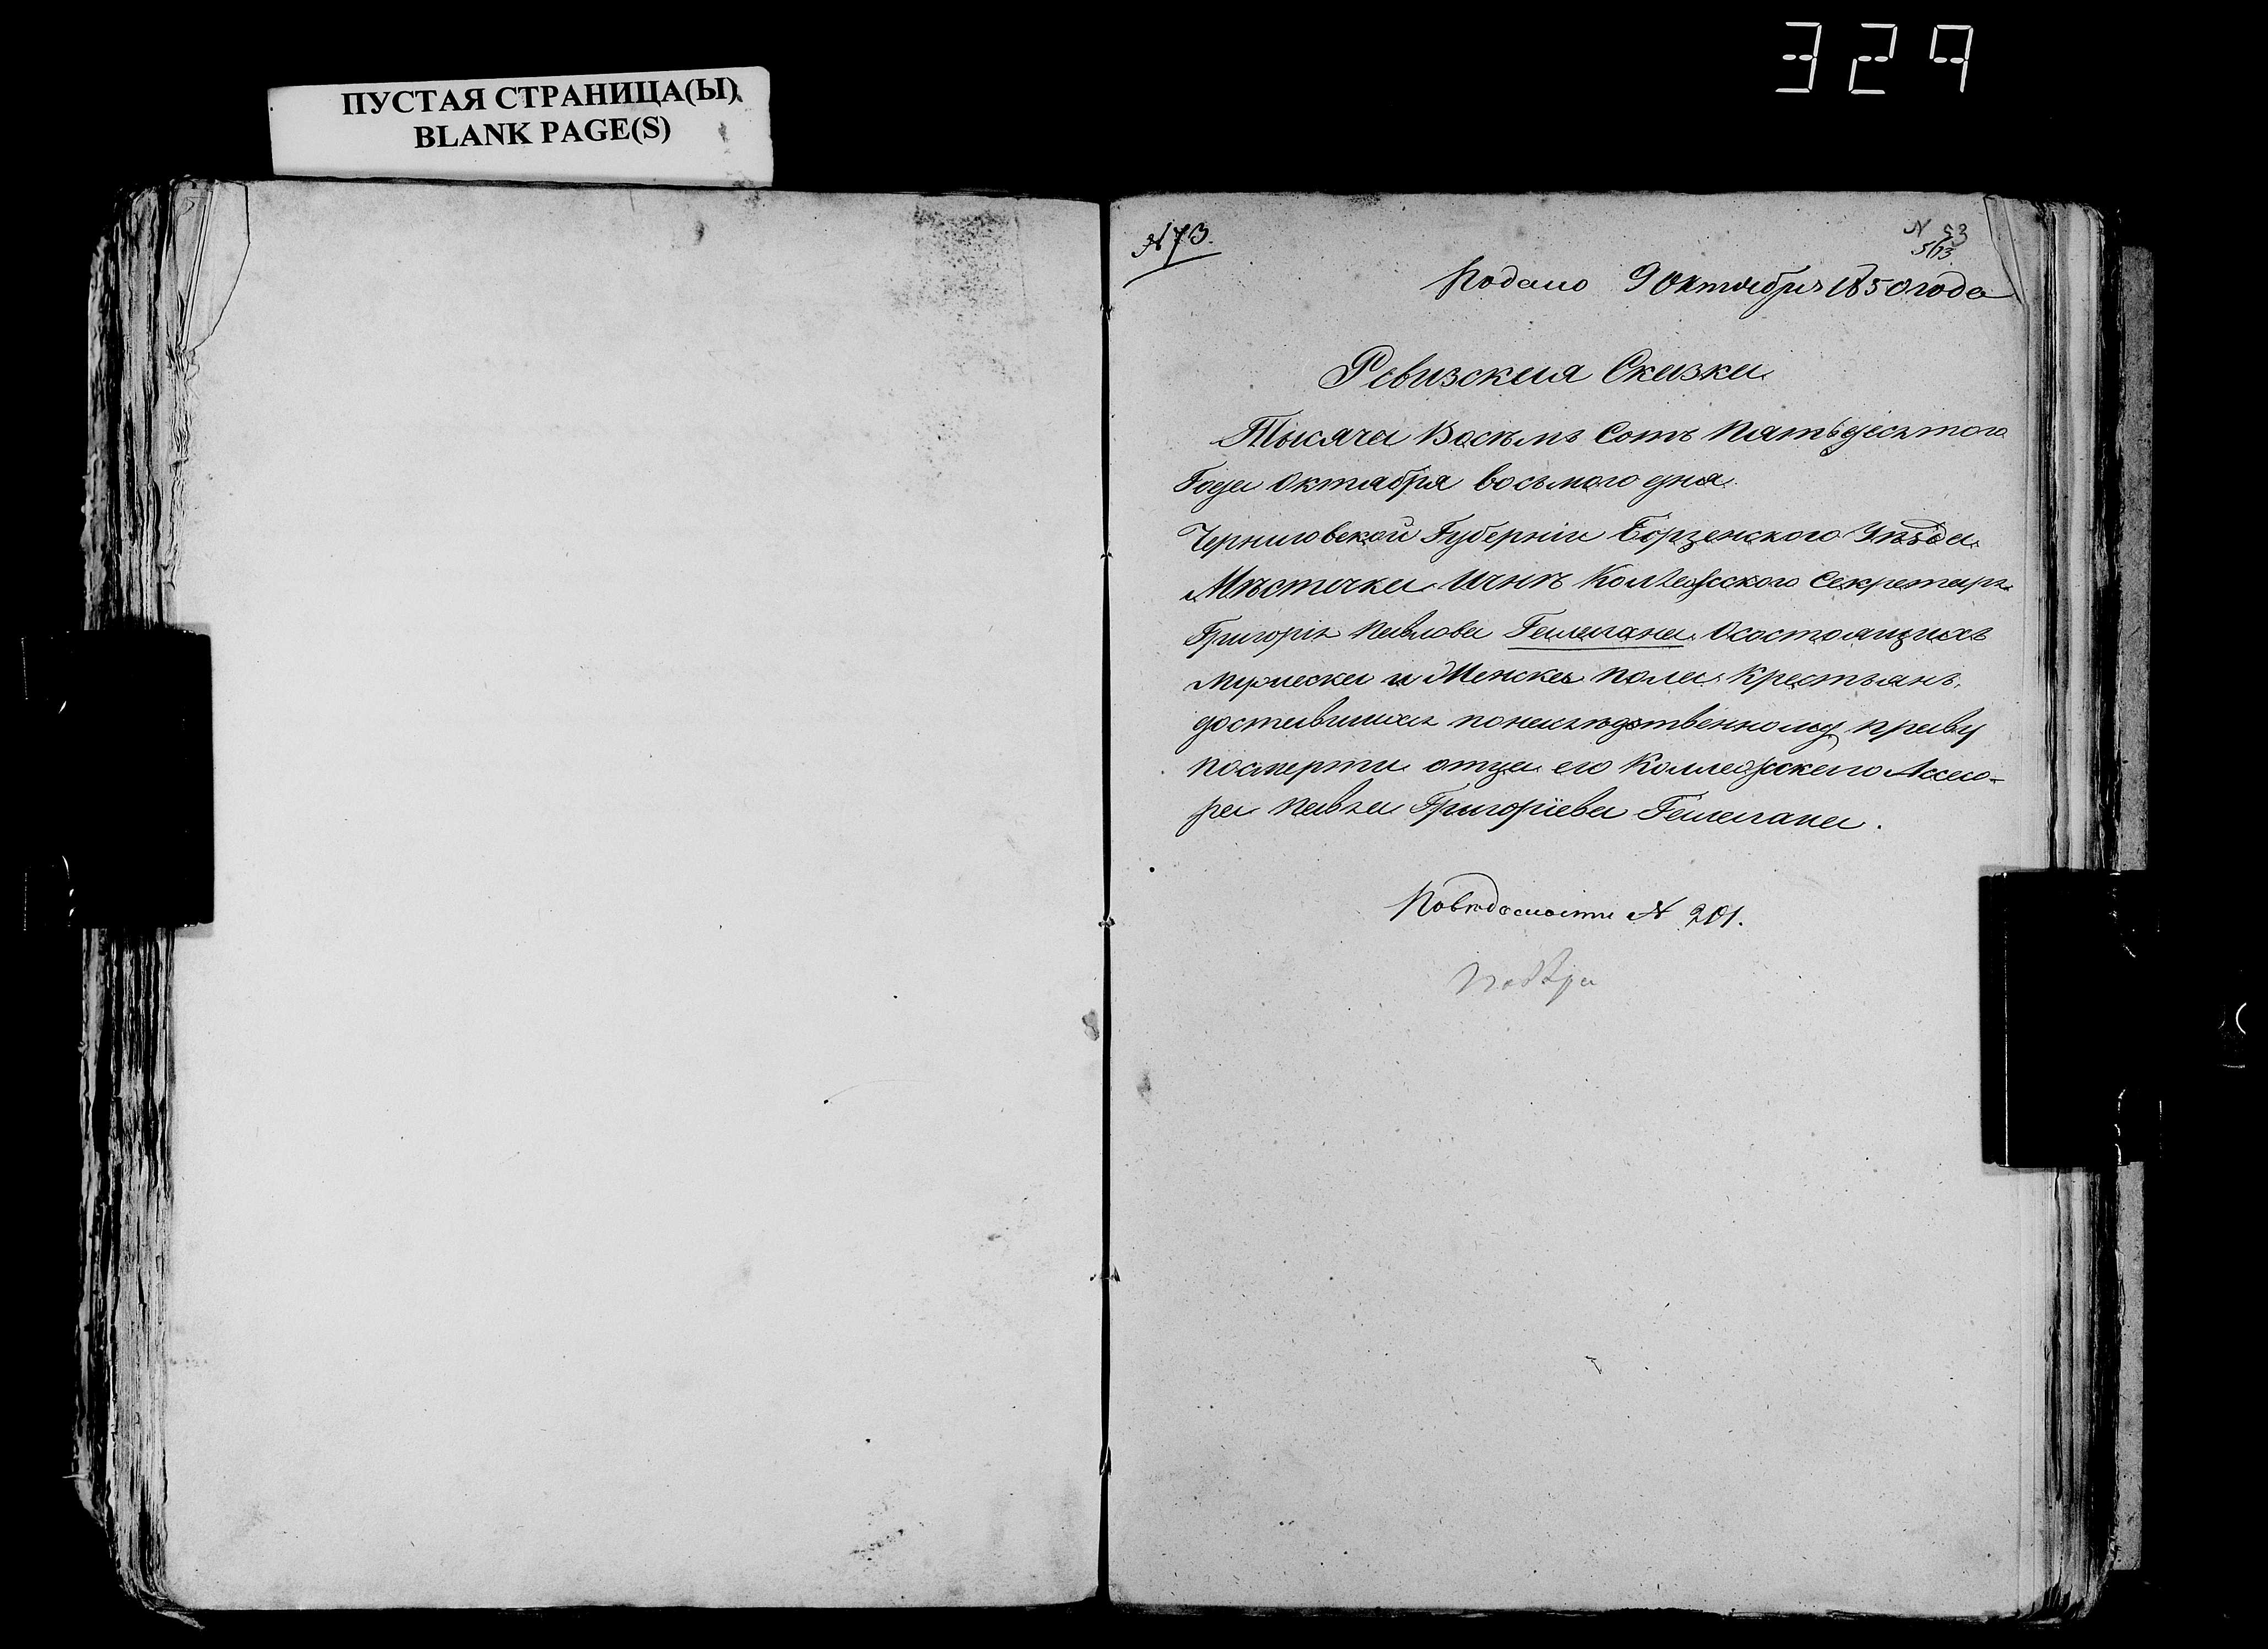 329
ПУСТАЯ СТРАНИЦА(Ы)
BLANK PAGE(S)
№ 73.
N 53
Подано 9 Октября 1850 года
Ревизская Сказка
Тысяча Восемь Сотъ Пятьдесятого
Года Октября восьмого дня.
Черниговской Губерніи Борзенского Уѣзда
Мѣстечка Ични Коллежского Секретаря
Григорія Павлова Галагана. О состоящихъ
мужеска и Женска пола Крестьянъ,
доставшихся по наслѣдственному праву
по смерти отца его Коллежскаго Ассесо-
ра Павла Григоріева Галагана.
По вѣдомости № 201.